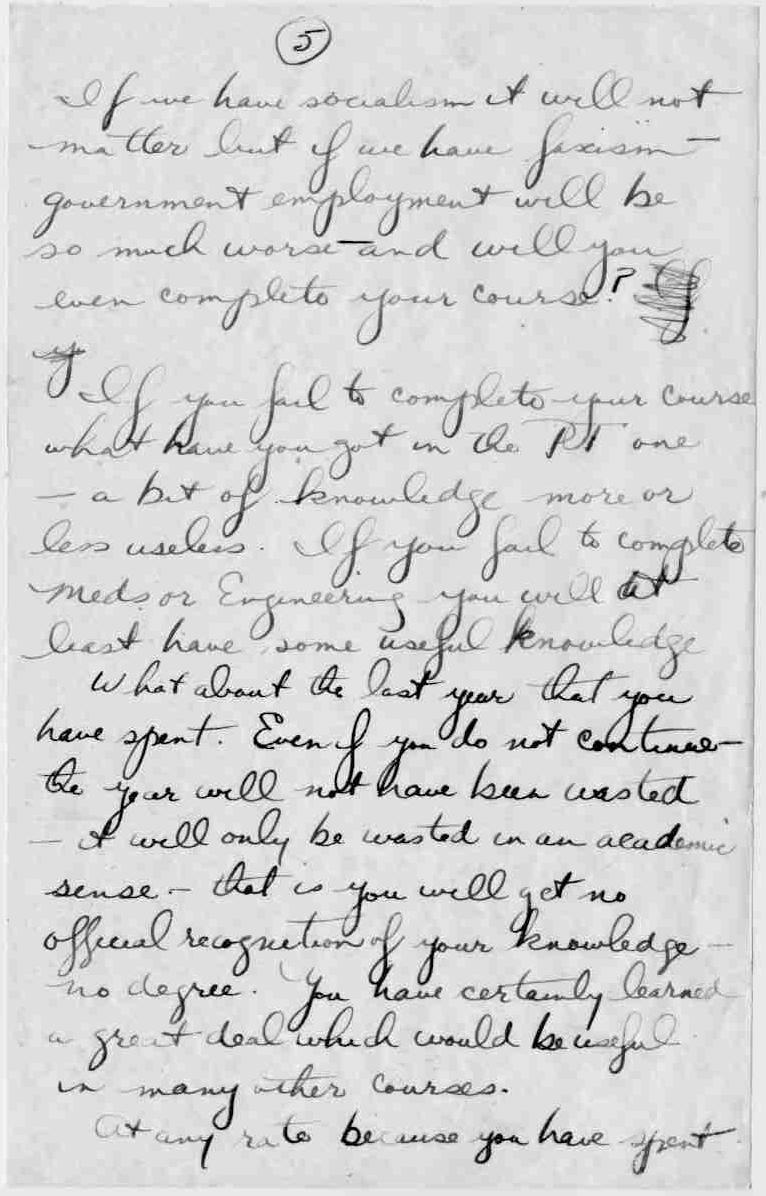 5
If we have socialism it will not
matter but if we have fascism –
government employment will be
so much worse – and will you
even complete your course?
If you fail to complete your course
what have you got in the P.T. one
– a bit of knowledge more or
less useless. If you fail to complete
Meds. or Engineering you will at
least have some useful knowledge
What about the last year that you
have spent. Even if you do not continue –
the year will not have been wasted
– it will only be wasted in an academic
sense – that is you will get no
official recognition of your knowledge –
no degree. You have certainly learned
a great deal which would be useful
in many other courses.
At any rate because you have spent